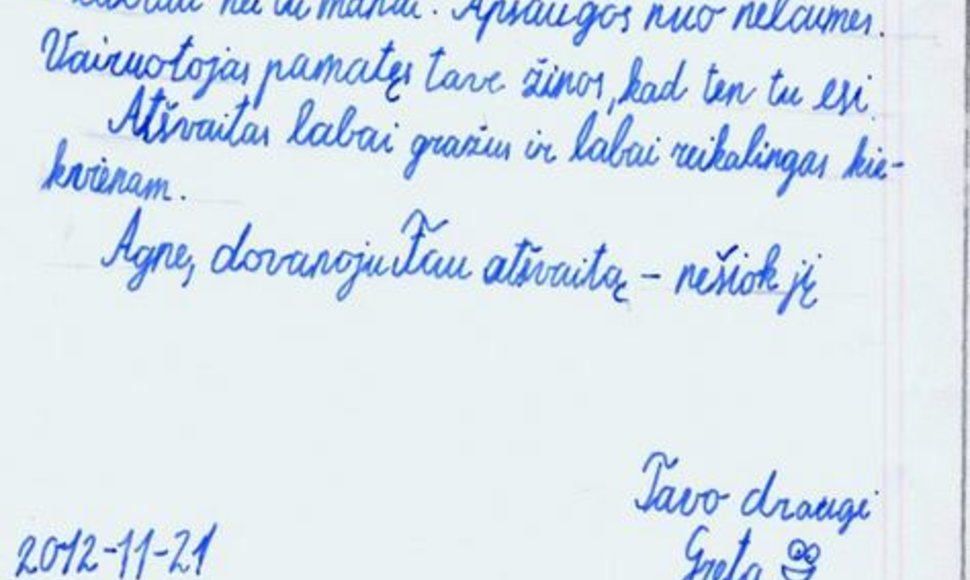 nei tu manai. Apsaugos nuo nelaimės.
Vairuotojas pamatęs tave žinos, kad ten tu esi.
Atšvaitas labai gražus ir labai reikalingas kie-
kvienam.
Agne, dovanoju Tau atšvaitą – nešiok jį
Tavo draugė
2012-11-21 Greta